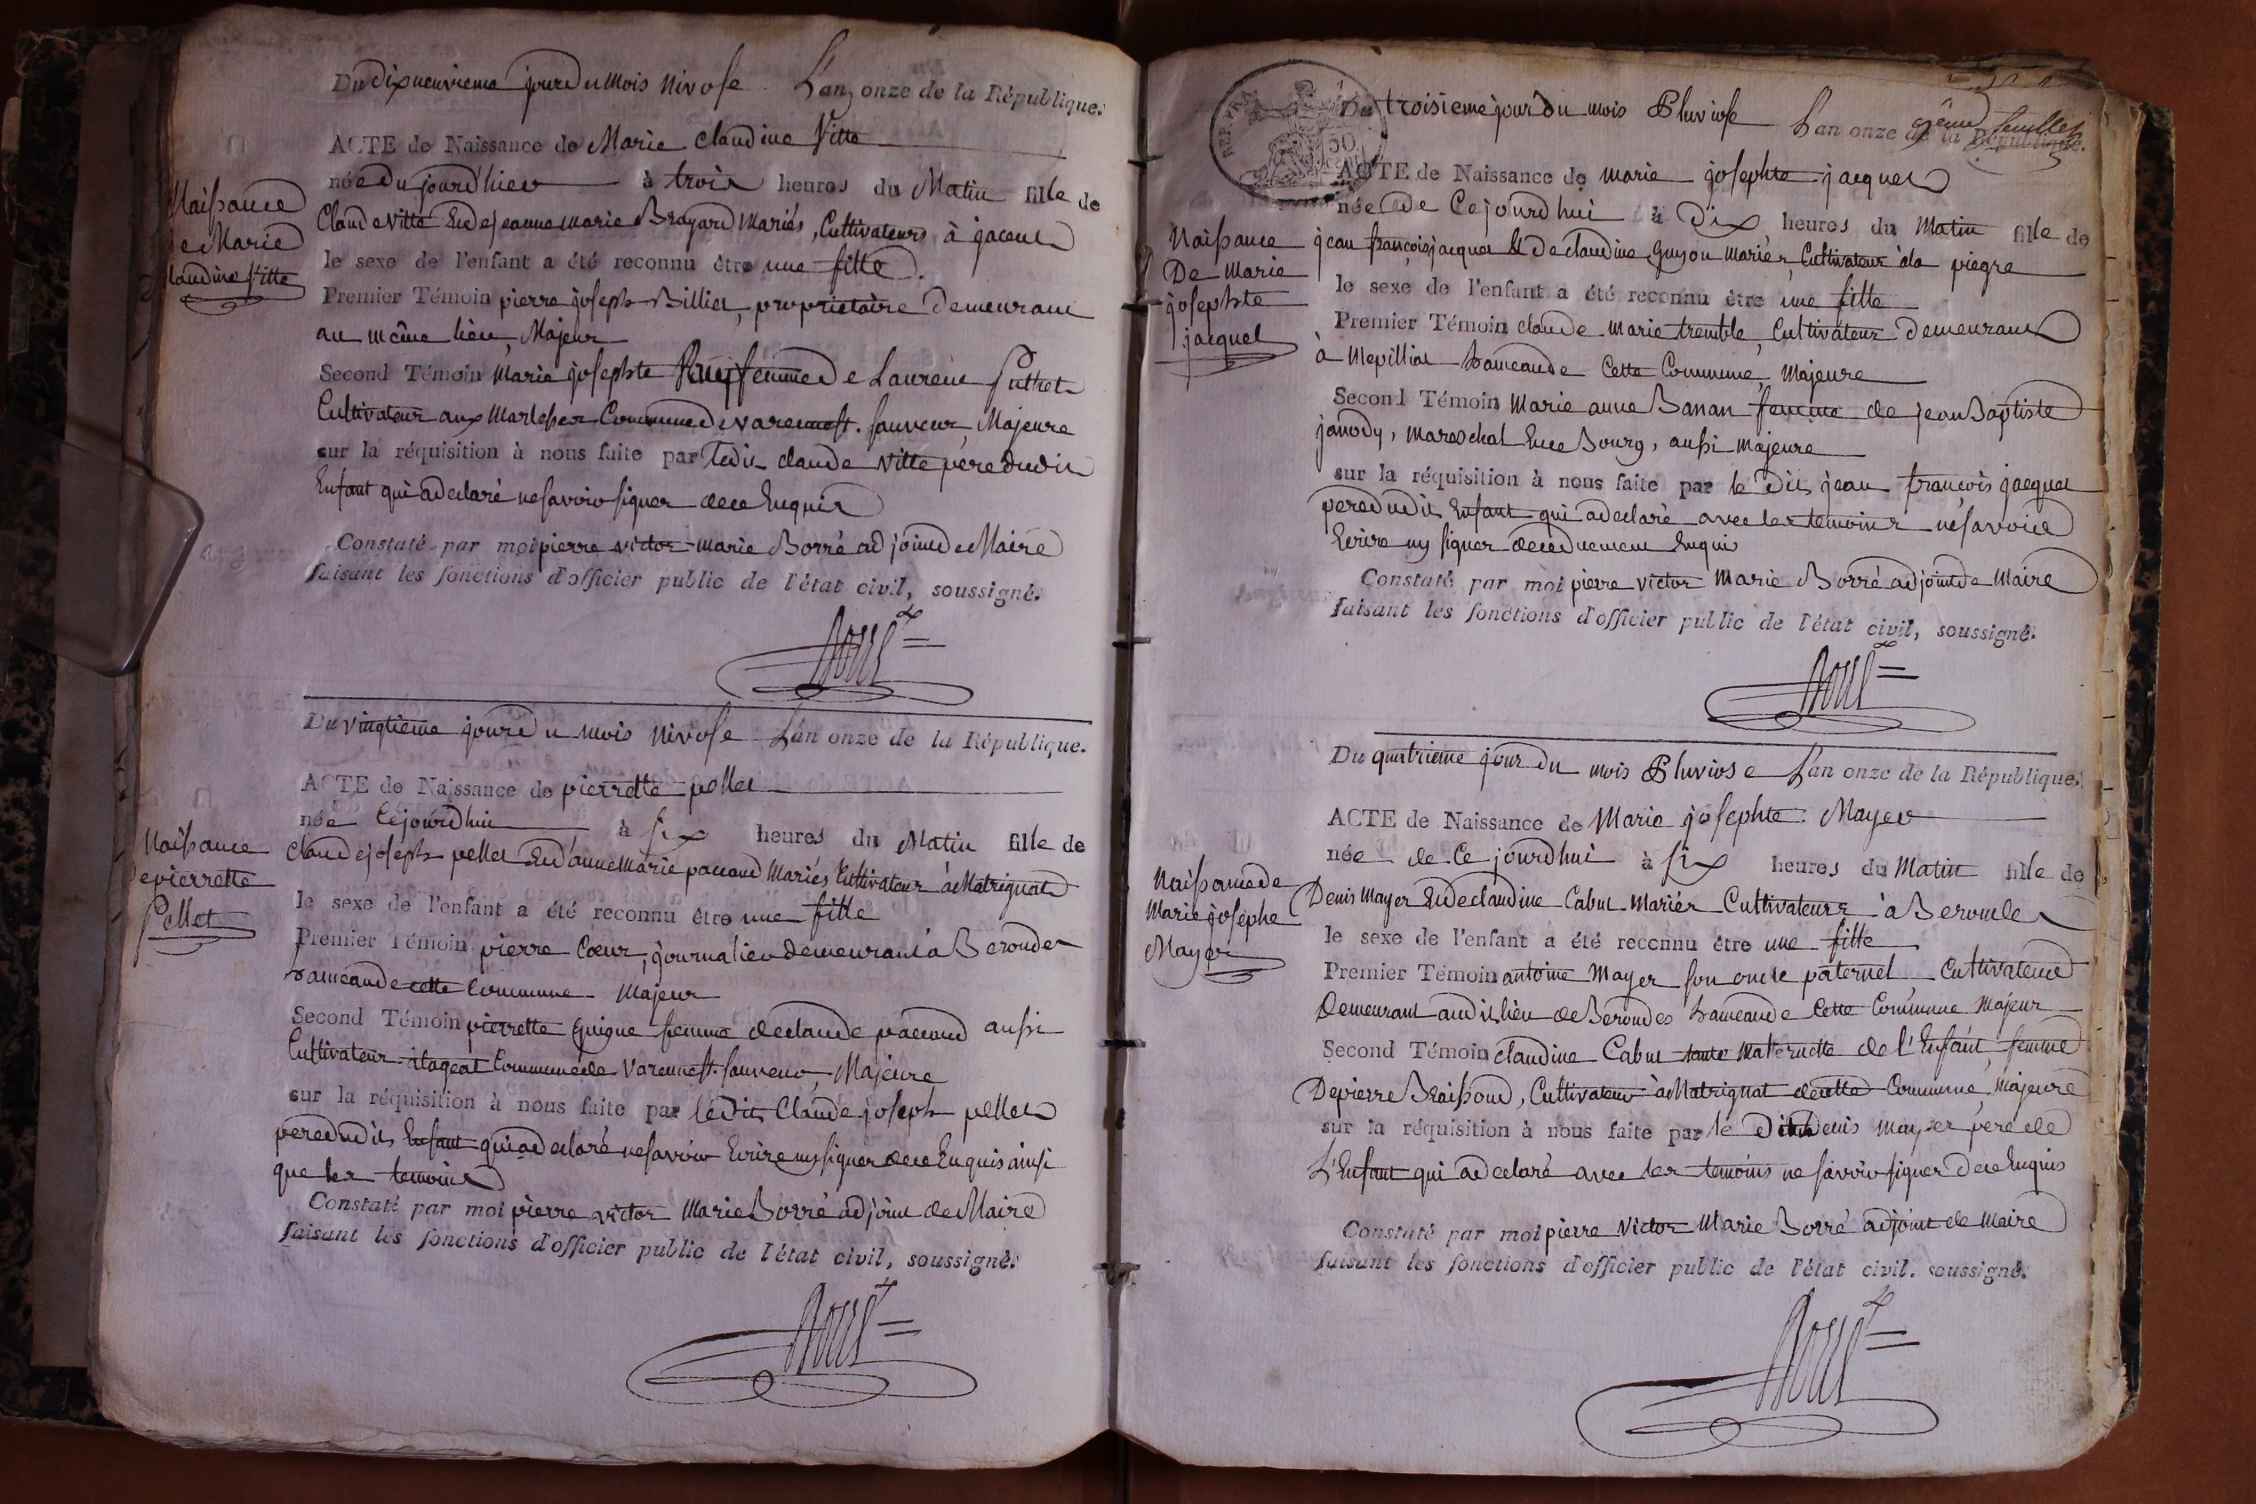 Du dixneuvieme jour du mois nivose L'an onze de la République.
ACTE de Naissance de Marie claudine Vitte
née du jourd'hier à trois heures du Matin fille de
Claude Vitte Et de jeanne marie Brayard Mariés, Cultivateurs à
le sexe de l'enfant a été reconnu être une fille.
Premier Témoin pierre joseph Billiet, proprietaire demeurant
au même lieu, Majeur
Second Témoin Marie josephte femme de Laurent Puthet
Cultivateur aux Commune de varenne st. sauveur, Majeure
sur la réquisition à nous faite par Ledit claude Vitte pere dudit
Enfant qui a declaré ne savoir signer de ce Enquis
Constaté par moi pierre victor marie Borré adjoint de Maire
faisant les fonctions d'officier public de l'état civil, soussigné.
Borré
Naissance
de Marie
claudine Vitte
Du vingtieme jour du mois nivose L'an onze de la République.
ACTE de Naissance de pierrette pellet
née Cejourd'hui à six heures du Matin fille de
claude joseph pellet Et d'anne Marie paccoud Mariés Cultivateur à Matrignat
le sexe de l'enfant a été reconnu être une fille
Premier Témoin pierre Cœur, journalier demeurant à Beroudes
hameau de cette Commune Majeur
Second Témoin pierrette Guigue femme de claude paccoud aussi
Cultivateur Commune de Varenne st. sauveur, Majeure
sur la réquisition à nous faite par ledit Claude joseph pellet
pere dudit Enfant qui a declaré ne savoir Ecrire ny signer de ce Enquis ainsi
que les temoins
Constaté par moi pierre victor Marie Borré adjoint de Maire
faisant les fonctions d'officier public de l'état civil, soussigné.
Borré
Naissance
de pierrette
Pellet
REP. FRA.
50
cent
feuillet
Du troisieme jour du mois Pluviose L'an onze de la République.
ACTE de Naissance de marie josephte jacquet
née de Cejourd'hui à Dix heures du Matin fille de
jean françois jacquet Et de claudine Guyon Mariés, Cultivateur à la piegre
le sexe de l'enfant a été reconnu être une fille
Premier Témoin claude marie tremble, Cultivateur demeurant
à Mepilliat hameau de Cette Commune, Majeure
Second Témoin Marie anne Banan femme de jean Baptiste
janody, mareschal En ce Bourg, aussi majeure
sur la réquisition à nous faite par le dit jean françois jacquet
pere dudit Enfant qui a declaré avec les temoins ne savoir
Ecrire ny signer de ce duement Enquis
Constaté par moi pierre victor Marie Borré adjoint de Maire
faisant les fonctions d'officier public de l'état civil, soussigné.
Borré
Naissance
De Marie
josephte
jacquet
Du quatrieme jour du mois Pluviose L'an onze de la République.
ACTE de Naissance de Marie josephte Mayer
née de Ce jourd'hui à six heures du Matin fille de
Denis Mayer Et de claudine Cabut Mariés Cultivateurs à Beroudes
le sexe de l'enfant a été reconnu être une fille
Premier Témoin antoine Mayer son oncle paternel Cultivateur
Demeurant audit lieu de Beroudes hameau de Cette Commune Majeur
Second Témoin claudine Cabut tante Maternelle de l'Enfant femme
De pierre Braissoud, Cultivateur à Matrignat de cette Commune, Majeure
sur la réquisition à nous faite par le dit Denis Mayer pere de
L'Enfant qui a declaré avec les temoins ne savoir signer de ce Enquis
Constaté par moi pierre Victor Marie Borré adjoint de Maire
faisant les fonctions d'officier public de l'état civil. soussigné.
Borré
Naissance de
Marie josephe
Mayer